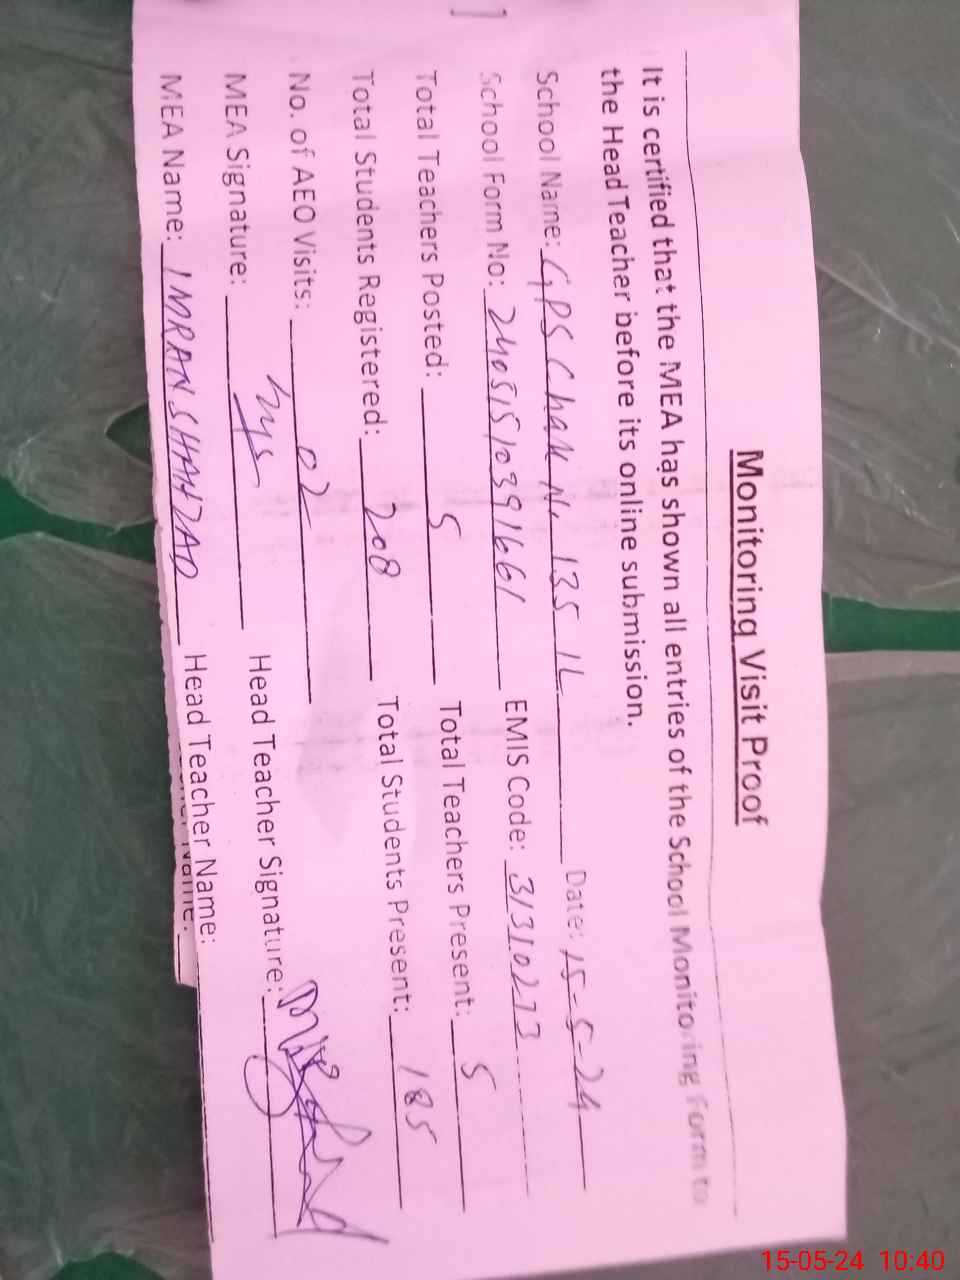 Monitoring Visit Proof
It is certified that the MEA has shown all entries of the School Monitoring Form to
the Head Teacher before its online submission.
School Name: GPS Chak No 135 1L Date: 15-5-24
School Form No: 24051510391661 EMIS Code: 31310273
Total Teachers Posted: 5 Total Teachers Present: 5
Total Students Registered: 208 Total Students Present: 185
No. of AEO Visits: 02
MEA Signature: Head Teacher Signature:
MEA Name: IMRAN SHAHZAD Head Teacher Name:
15-05-24 10:40